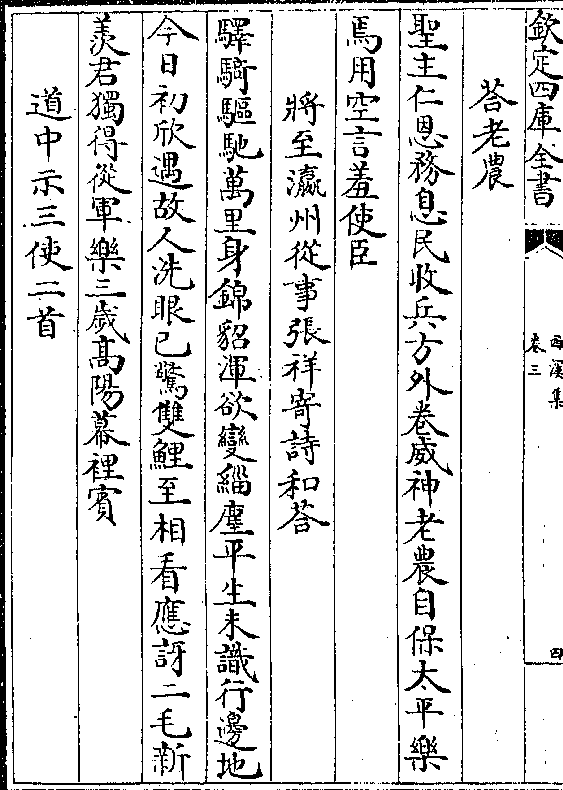 欽定四庫全書
西溪集
卷三
四
荅老農
聖主仁恩務息民收兵方外卷威神老農自保太平樂
焉用空言羞使臣
將至瀛州從事張祥寄詩和荅
驛騎驅馳萬里身錦貂渾欲變緇塵平生未識行邊地
今日初欣遇故人洗眼已驚雙鯉至相看應訝二毛新
羨君獨得從軍樂三歲髙陽幕裡賓
道中示三使二首